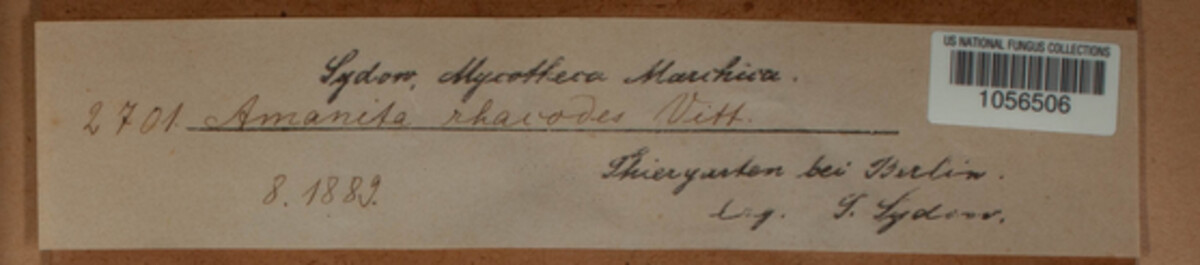 Sydow, Mycotheca Marchica.
2701. Amanita rhacodes Vitt.
8. 1889.
Thiergarten bei Berlin.
leg. P. Sydow.
US NATIONAL FUNGUS COLLECTIONS
1056506